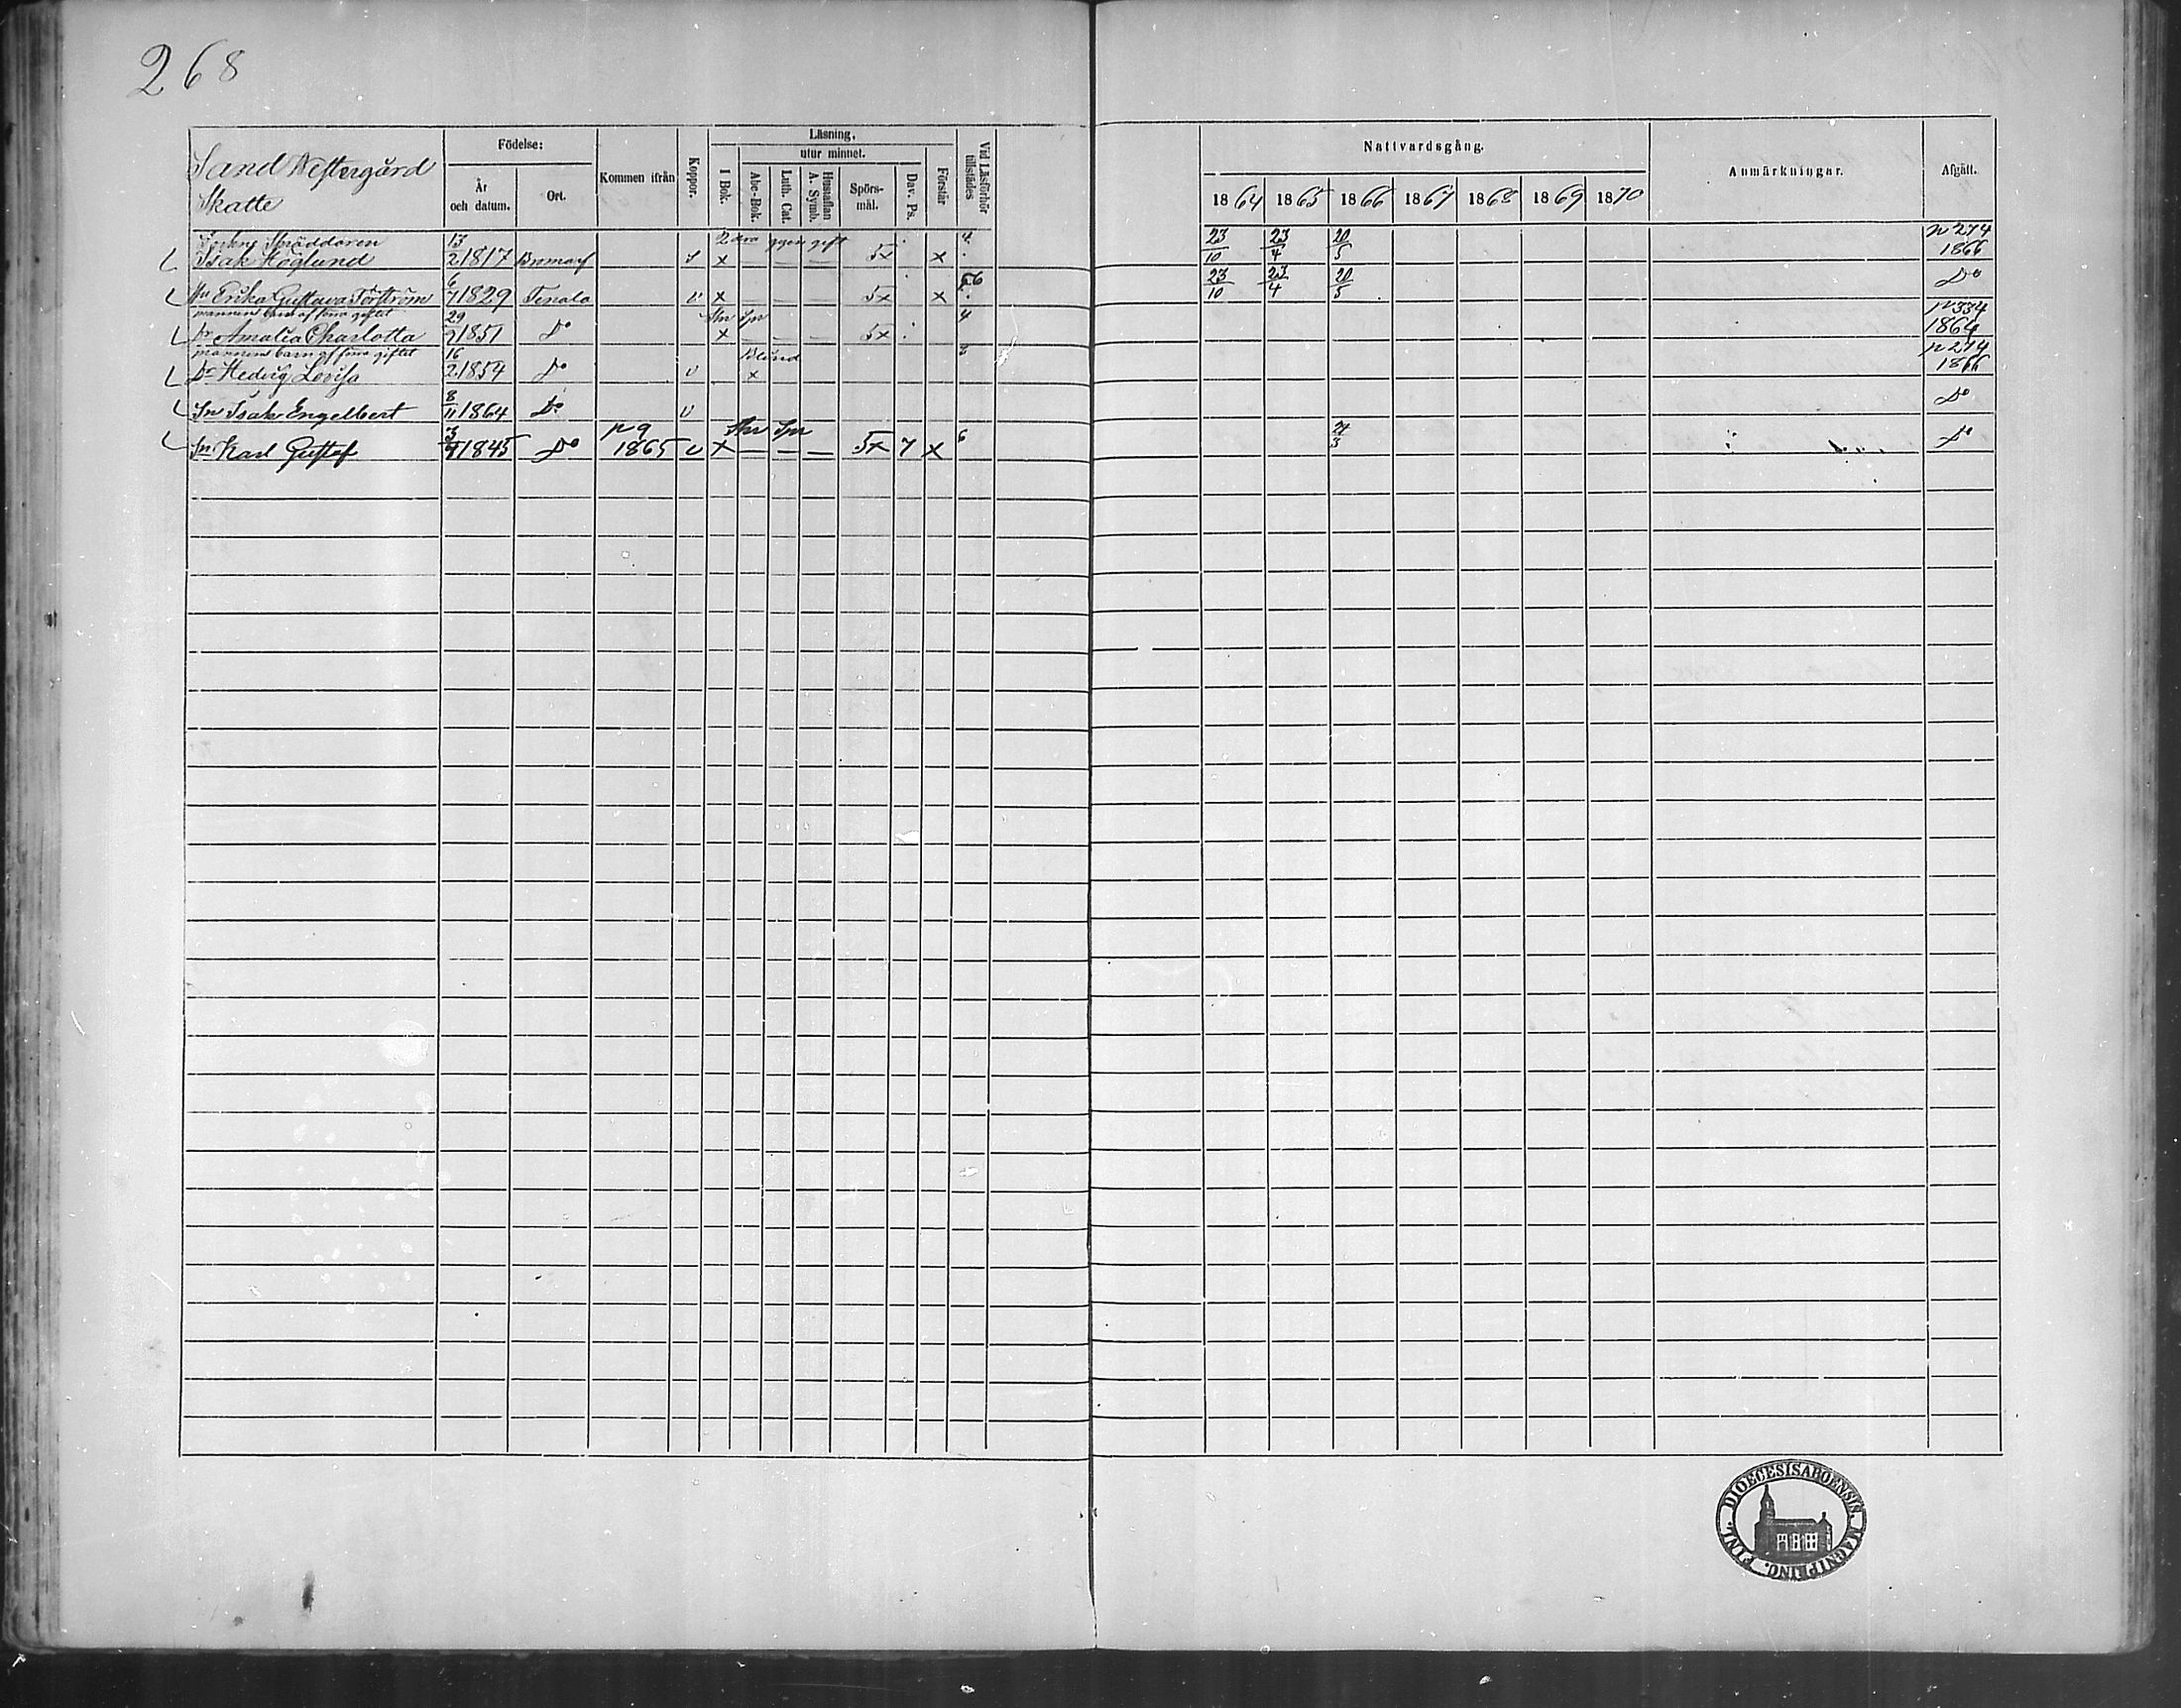 268
Sand Westergård
Skatte
Födelse:
År och datum.
Ort.
Kommen ifrån
Koppor.
Läsning,
I Bok.
utur minnet.
Abc-Bok.
Luth. Cat.
Hustaflan A. Symb.
Spörs-mål.
Dav. Ps.
Förstår
Vid Läsförhör tillstädes
Nattvardsgång.
1864 1865 1866 1867 1868 1869 1870
Anmärkningar.
Afgått.
Sockne Skräddaren 2dra ggen gift
Isak Höglund 13/2 1817 Bromarf x 5x x 4 23/10 23/4 20/5 p 274 1866
Hu Erika Gustava Törström 6/7 1829 Tenala v x 5x x 23/10 23/4 20/5 Do
mannens barn af förra giftet
Dr Amalia Charlotta 29/9 1851 Do x 5x 4 p 334 1864
mannens barn af förra giftet
Dr Hedvig Lovisa 16/2 1854 Do v Blind x p 274 1866
Sn Isak Engelbert 8/11 1864 Do v Do
Sn Karl Gustaf 1845 Do p 9 1865 v x 5x 7 x 6 Do
FINL. DIOECESIS ABOENSIS. MAGNI PRINC.